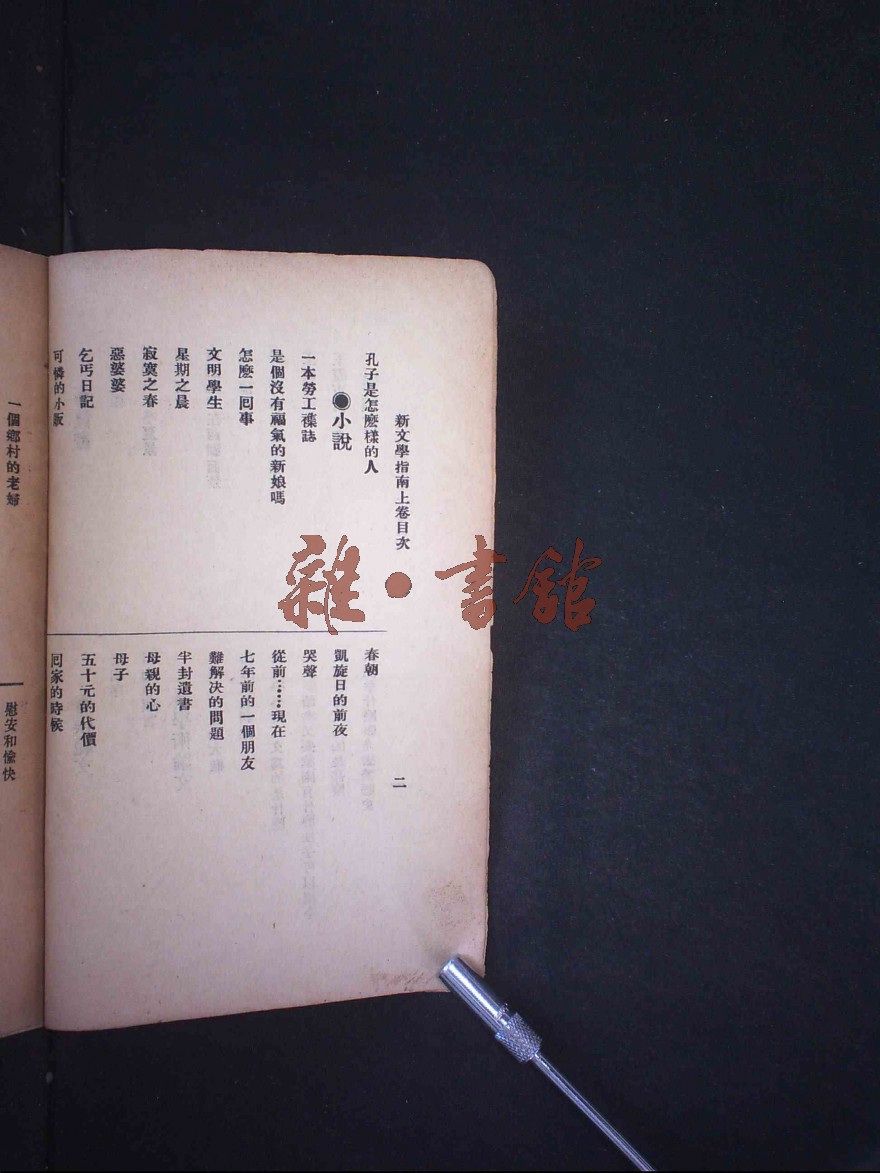 新文學指南上卷目次
二
孔子是怎麽樣的人
●小說
一本勞工襍誌
是個沒有福氣的新娘嗎
怎麽一囘事
文明學生
星期之晨
寂寞之春
惡婆婆
乞丐日記
可憐的小販
春朝
凱旋日的前夜
哭聲
從前……現在
七年前的一個朋友
難解決的問題
半封遺書
母親的心
母子
五十元的代價
囘家的時候
一個鄉村的老婦
慰安和愉快
雜·書館